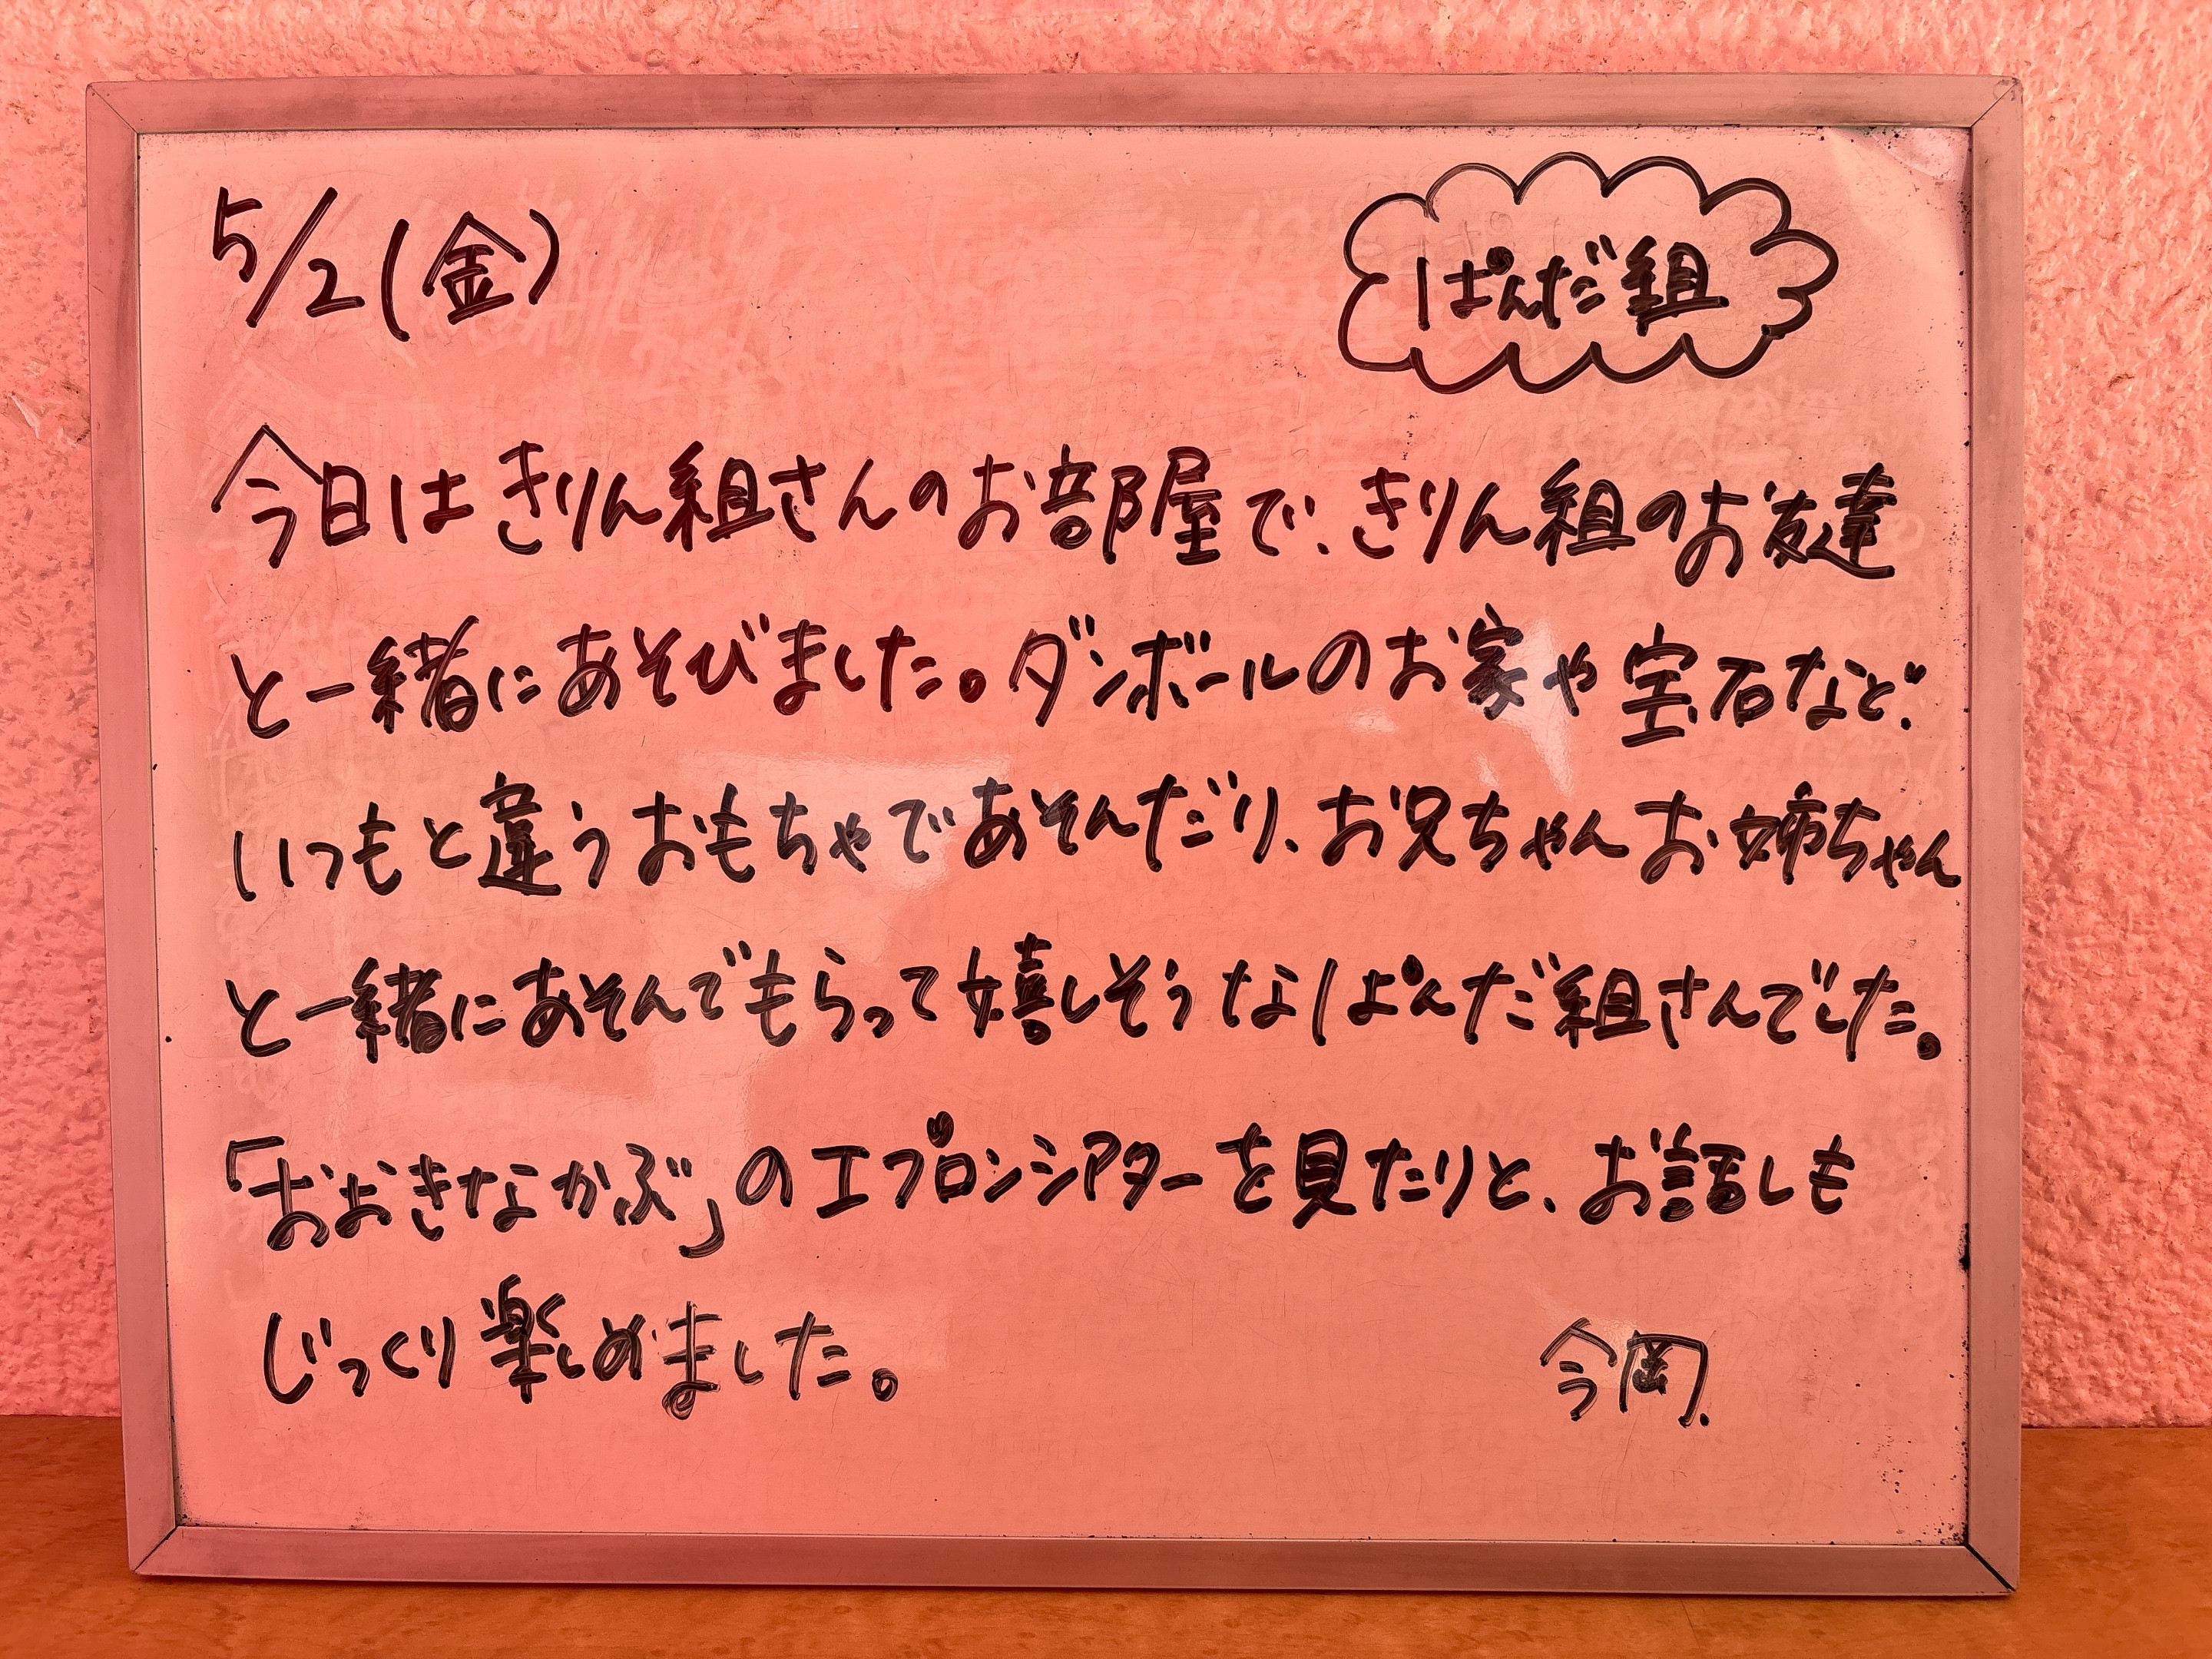 5/2(金)
ぱんだ組
今日はきりん組さんのお部屋で、きりん組のお友達
と一緒にあそびました。ダンボールのお家や宝石など
いつもと違うおもちゃであそんだり、お兄ちゃんお姉ちゃん
と一緒にあそんでもらって嬉しそうなぱんだ組さんでした。
「おおきなかぶ」のエプロンシアターを見たりと、お話しも
じっくり楽しめました。
今岡